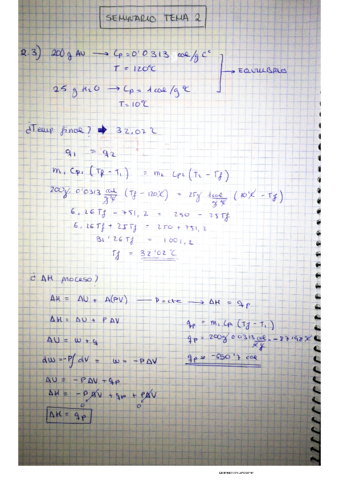 SEMINARIO TEMA 2
2.3) 200g AU → Cp = 0'0313 cal/g C°
T = 120°C
→ EQUILIBRIO
25 g H₂O → Cp = 1 cal/g °C
T = 10°C
¿Temp final? → 32,02°C
q₁ = q₂
m₁ Cp₁ (Tf - T₁) = m₂ Cp₂ (T₂ - Tf)
200g · 0'0313 cal/g°C (Tf - 120°C) = 25g 1cal/g°C (10°C - Tf)
6,26Tf - 751,2 = 250 - 25Tf
6,26Tf + 25Tf = 250 + 751,2
31'26Tf = 1001,2
Tf = 32'02°C
¿ ΔH proceso?
ΔH = ΔU + Δ(PV) → P = cte → ΔH = qp
ΔH = ΔU + PΔV
qp = m₁ Cp (Tf - T₁)
ΔU = W + q
qp = 200g 0'0313 cal/g°C
dW = -P∫dV = W = -PΔV
ΔU = -PΔV + qp
ΔH = -PΔV + qp + PΔV
0 0
ΔH = qp